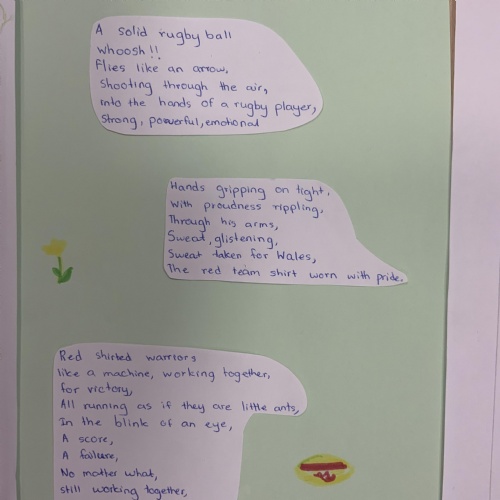 A solid rugby ball
Whoosh!!
Flies like an arrow,
Shooting through the air,
Into the hands of a rugby player,
Strong, powerful, emotional
Hands gripping on tight,
With proudness rippling,
Through his arms,
Sweat, glistening,
Sweat taken for Wales,
The red team shirt worn with pride.
Red shirted warriors
like a machine, working together,
for victory,
All running as if they are little ants,
In the blink of an eye,
A score,
A failure,
No matter what,
still working together,